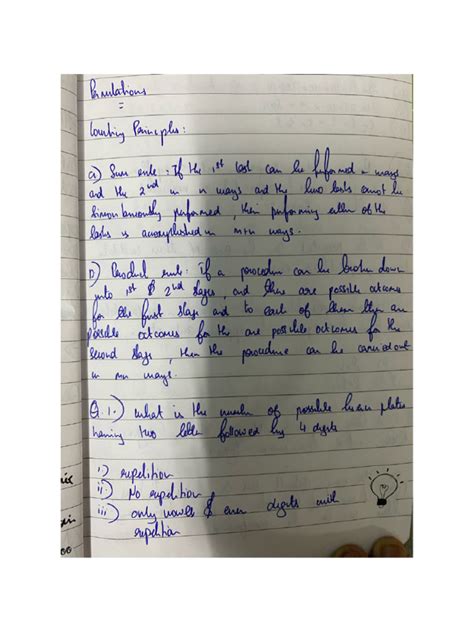 Permutations
Counting Principles:
a) Sum rule: If the 1st task can be performed m ways
and the 2nd in n ways and the two tasks cannot be
simultaneously performed, then performing either of the
tasks is accomplished in m+n ways.
b) Product rule: if a procedure can be broken down
into 1st & 2nd stages, and there are possible outcomes
for the first stage and to each of them there are
possible outcomes for the are possible outcomes for the
second stage, then the procedure can be carried out
in mn ways.
Q.1.) what is the number of possible license plates
having two letter followed by 4 digits
i) repetition
ii) No repetition
iii) only vowels & even digits with
repetition